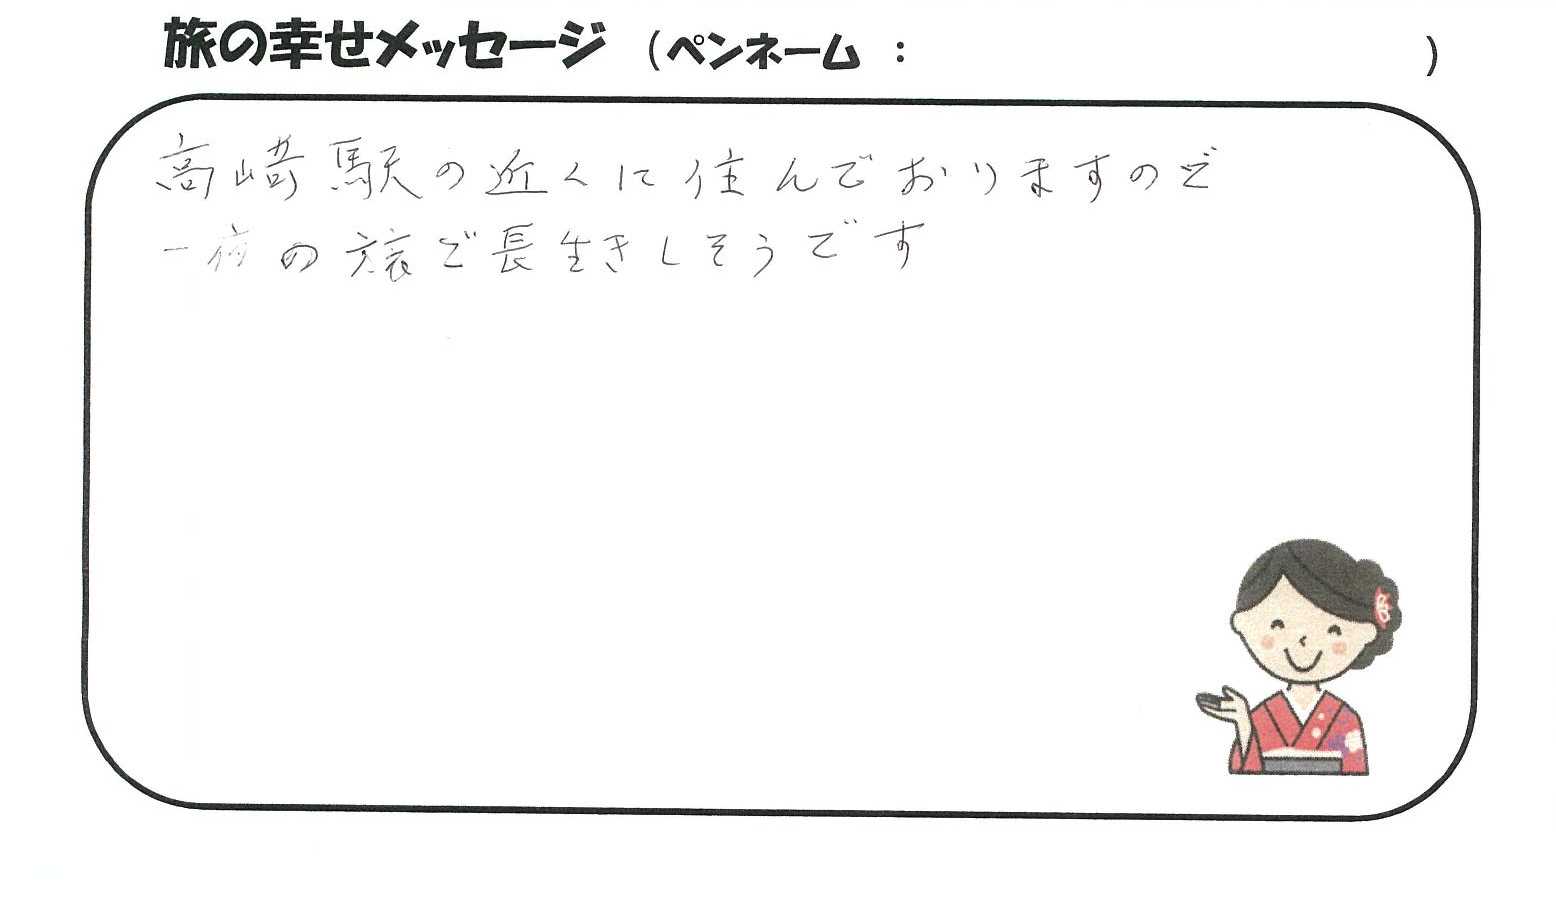 旅の幸せメッセージ (ペンネーム : )
高崎駅の近くに住んでおりますので
一夜の旅で長生きしそうです